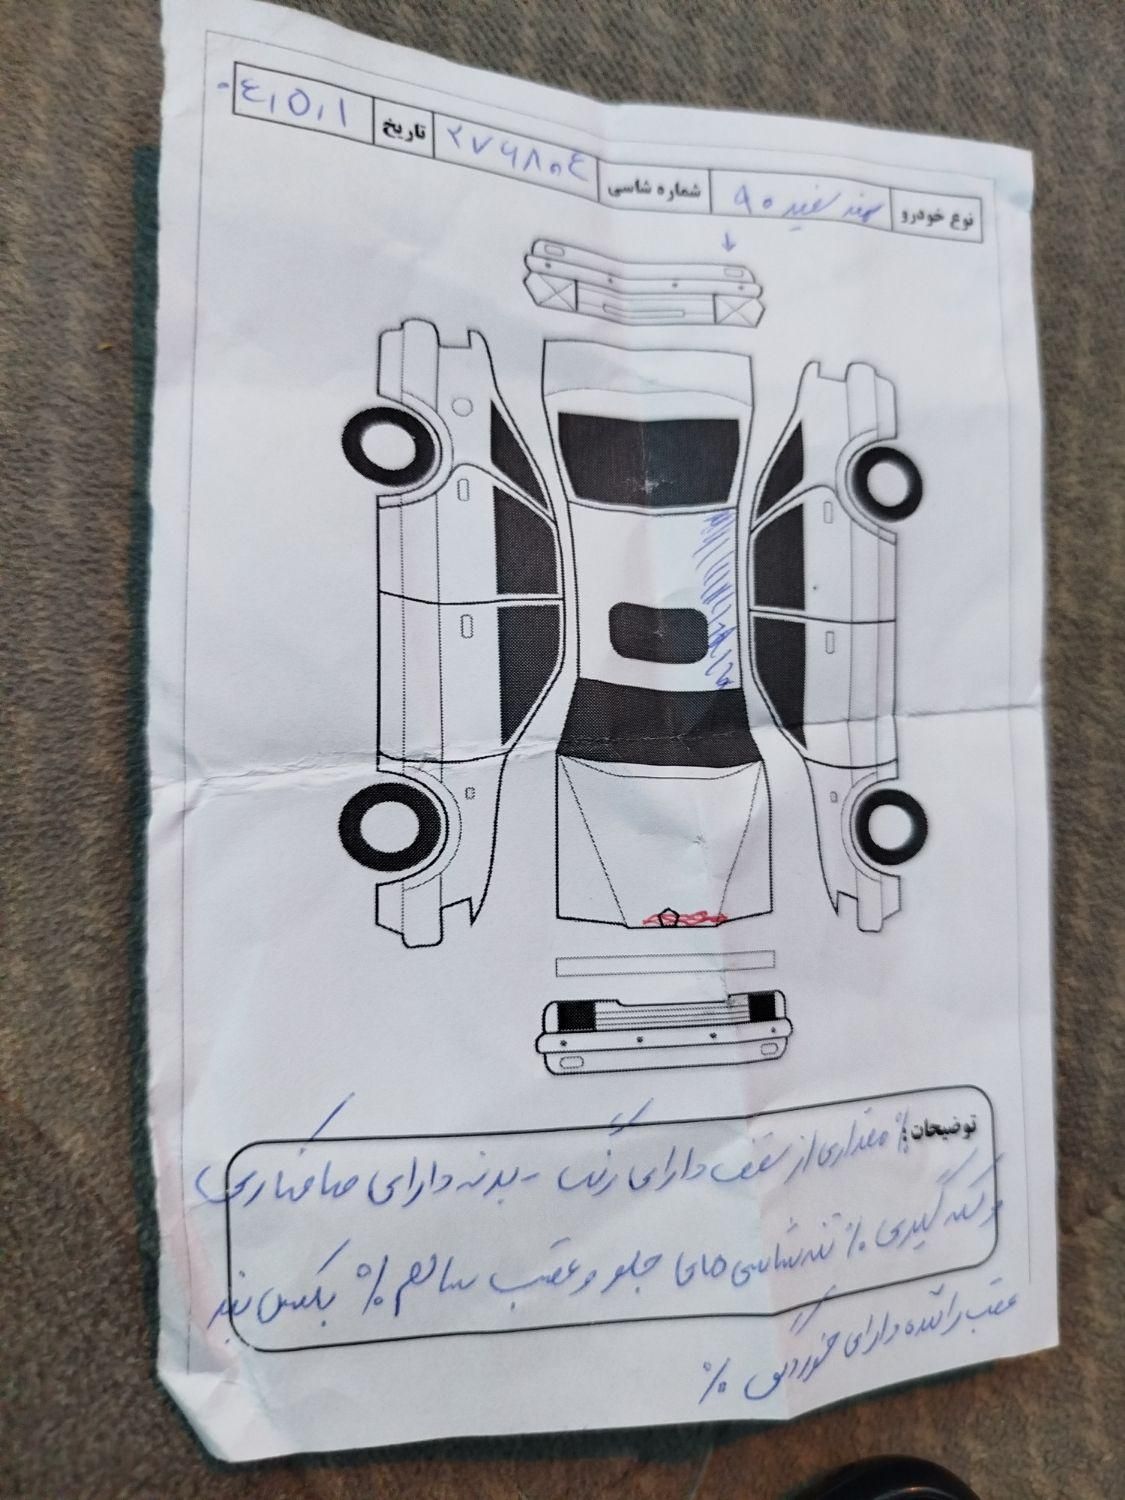 نوع خودرو سمند سفید ۹۰ شماره شاسی ۲۷۶۸۰۴ تاریخ ۰۴,۵,۱
توضیحات: ٪ مقداری از سقف دارای رنگ - بدنه دارای صافکاری
و لکه گیری ٪ تنه شاسی های جلو و عقب سالم ٪
عقب راننده دارای خوردگی ٪